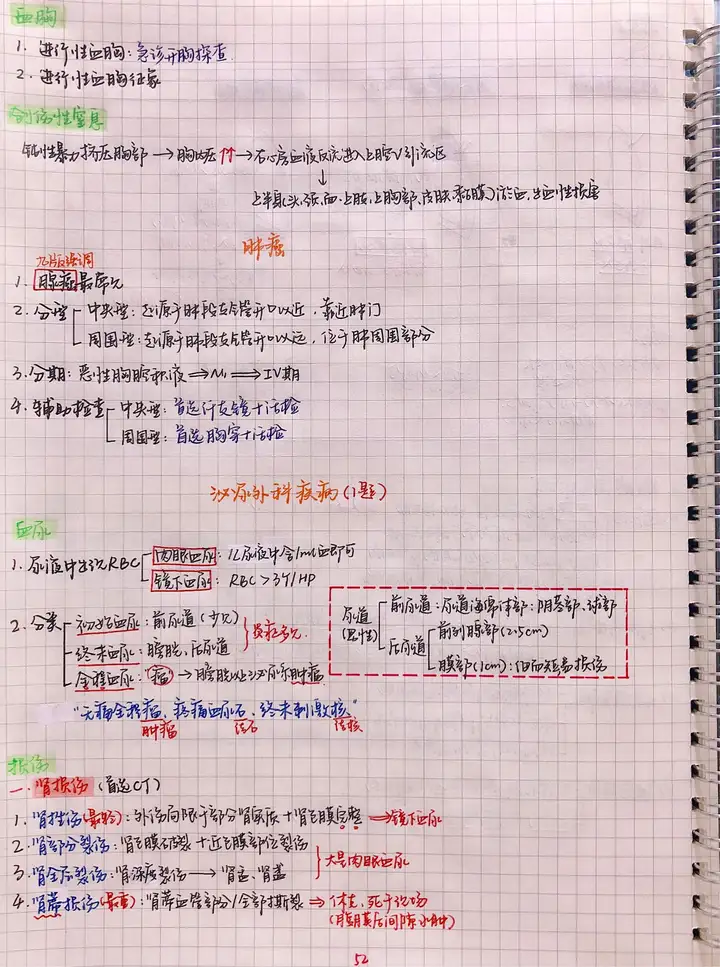 血胸
1. 进行性血胸：急诊开胸探查
2. 进行性血胸征象
创伤性窒息
钝性暴力挤压胸部 → 胸内压↑↑ → 右心房血液反流进入上腔V引流区
↓
上半身(头、颈、面、上肢、上胸部、皮肤、黏膜)淤血、出血性损害
肺癌
九版强调
1. 腺癌最常见
2. 分型 中央型：起源于肺段支气管开口以近，靠近肺门
周围型：起源于肺段支气管开口以远，位于肺周围部分
3. 分期：恶性胸腔积液 ⇒ M₁ ⇒ IV期
4. 辅助检查 中央型：首选纤支镜+活检
周围型：首选胸穿+活检
泌尿外科疾病(1题)
血尿
1. 尿液中出现RBC 肉眼血尿：1L尿液中含1ml血即可
镜下血尿：RBC>3个/HP
2. 分类 初始血尿：前尿道(少见)
终末血尿：膀胱、后尿道
炎症多见
全程血尿："癌" → 膀胱以上泌尿系肿瘤
尿道(男性) 前尿道：尿道海绵体部：阴茎部、球部
后尿道 前列腺部(2.5cm)
膜部(1cm)：细而短易损伤
"无痛全程瘤、疼痛血尿石、终末刺激核"
肿瘤 结石 结核
损伤
一. 肾损伤 (首选CT)
1. 肾挫伤(最轻)：外伤局限于部分肾实质+肾包膜完整 ⇒ 镜下血尿
2. 肾部分裂伤：肾包膜破裂+近包膜部位裂伤
3. 肾全层裂伤：肾深度裂伤 → 肾盂、肾盏
大量肉眼血尿
4. 肾蒂损伤(最重)：肾蒂血管部分/全部撕裂 ⇒ 休克、死于现场
(腹膜后间隙水肿)
52